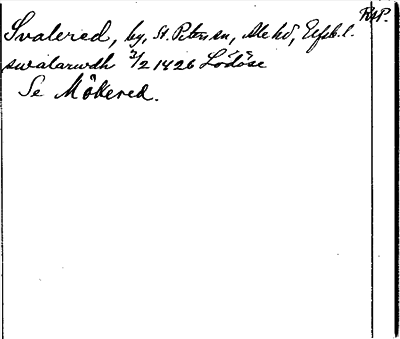 RAP.
Svalered, by, St. Peters sn, Ale hd, Elfsb. l.
swalarwdh 3/2 1426 Lödöse
Se Mökered.